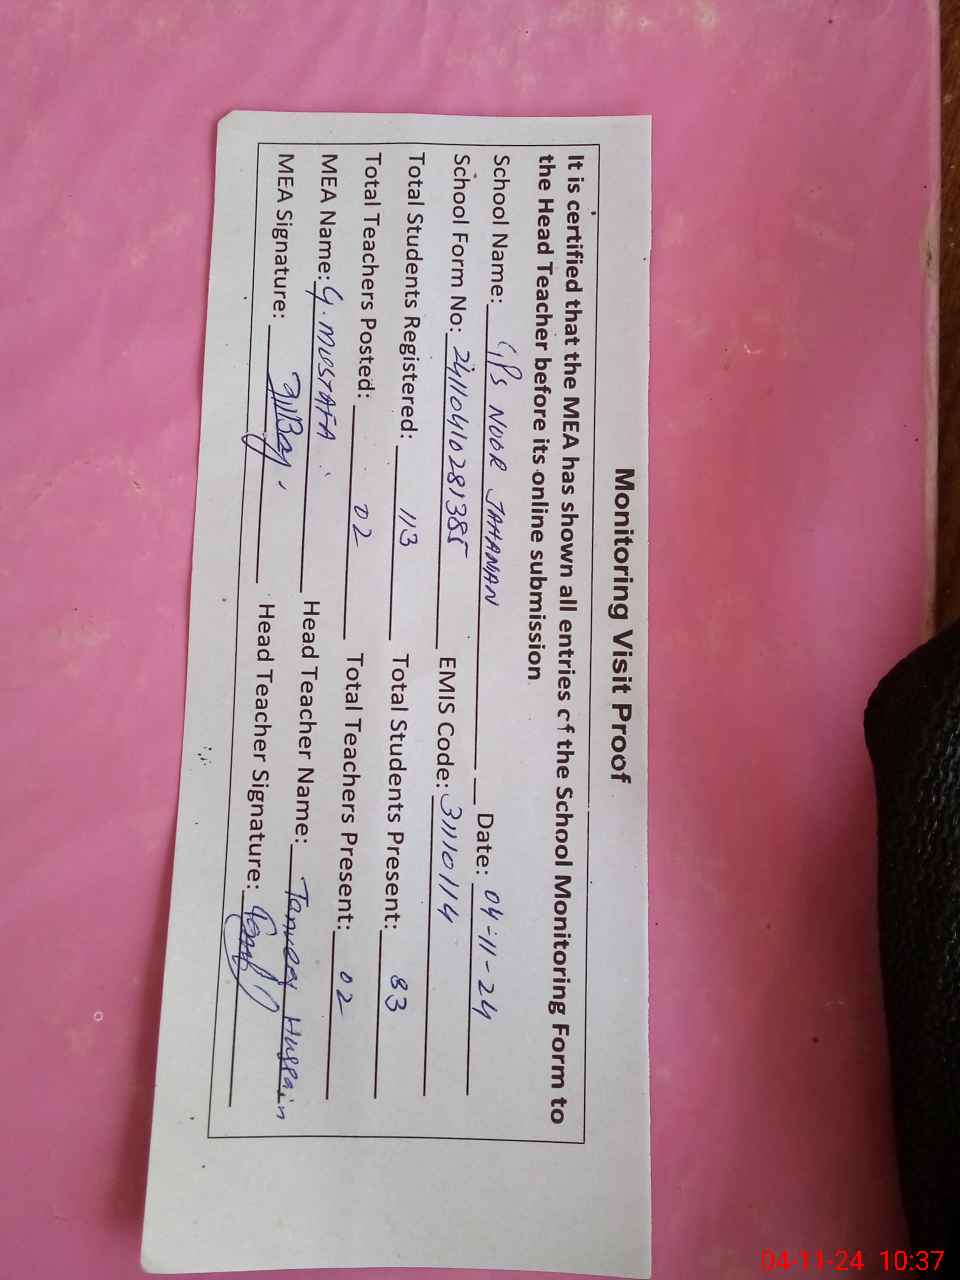 Monitoring Visit Proof
It is certified that the MEA has shown all entries of the School Monitoring Form to
the Head Teacher before its online submission
School Name: GPS NOOR JAHANIAN Date: 04-11-24
School Form No: 24110410281385 EMIS Code: 31110114
Total Students Registered: 113 Total Students Present: 83
Total Teachers Posted: 02 Total Teachers Present: 02
MEA Name: G. MUSTAFA Head Teacher Name: Tanveer Hussain
MEA Signature: Head Teacher Signature:
04-11-24 10:37